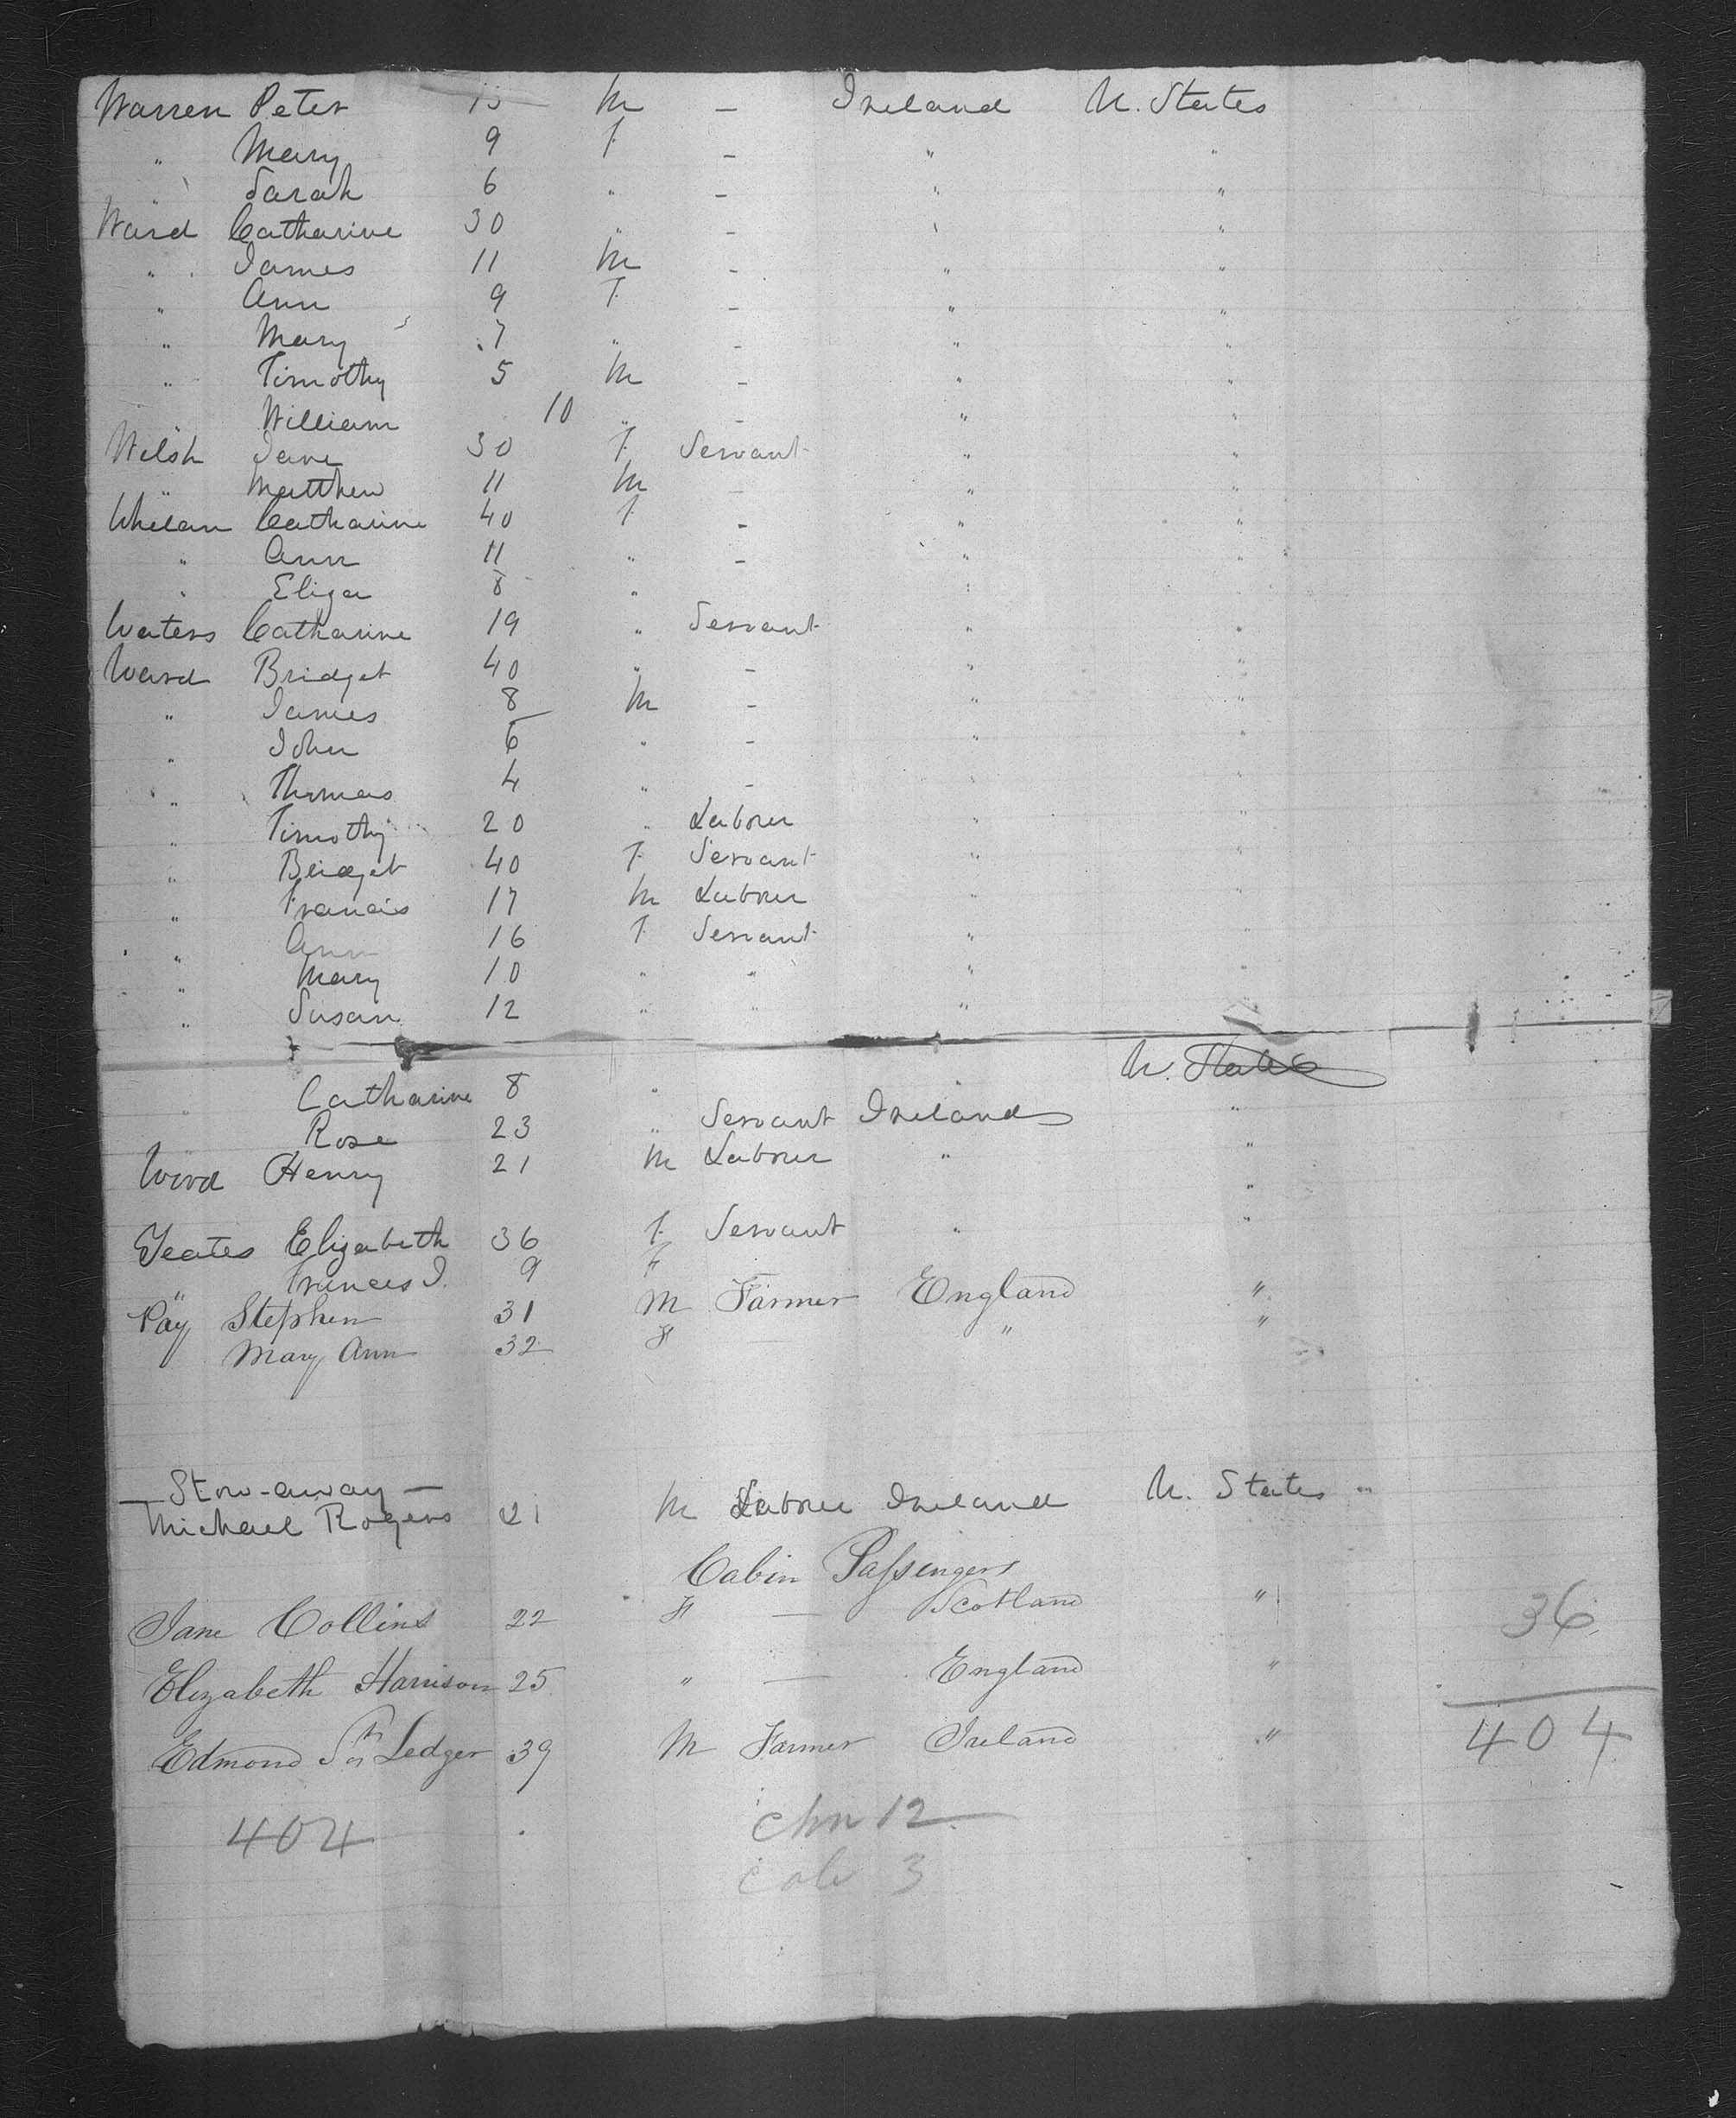 Warren Peter 13 M — Ireland U. States
" Mary 9 F — " "
" Sarah 6 " — " "
Ward Catharine 30 " — " "
" James 11 M — " "
" Ann 9 F — " "
" Mary 7 " — " "
" Timothy 5 M — " "
" William 10 " — " "
Welsh Jane 30 F Servant " "
" Matthew 11 M — " "
Whelan Catharine 40 F — " "
" Ann 11 " — " "
" Eliza 8 " " "
Waters Catharine 19 " Servant " "
Ward Bridget 40 " — " "
" James 8 M — " "
" John 6 " — " "
" Thomas 4 " — " "
" Timothy 20 " Labourer " "
" Bridget 40 F Servant " "
" Francis 17 M Labourer " "
" Ann 16 F Servant " "
" Mary 10 " " " "
" Susan 12 " " "
U. States
" Catharine 8 "
" Rose 23 " Servant Ireland "
Wood Henry 21 M Labourer " "
Yeates Elizabeth 36 F Servant " "
" Frances J. 9 F
Pay Stephen 31 M Farmer England "
Mary Ann 32 F — " "
— Stow-away —
Michael Rogers 21 M Labourer Ireland U. States "
Cabin Passengers
Jane Collins 22 F — Scotland "
36
Elizabeth Harrison 25 " — England "
Edmond Ledger 39 M Farmer Ireland "
404
404
Chn 12
cab 3